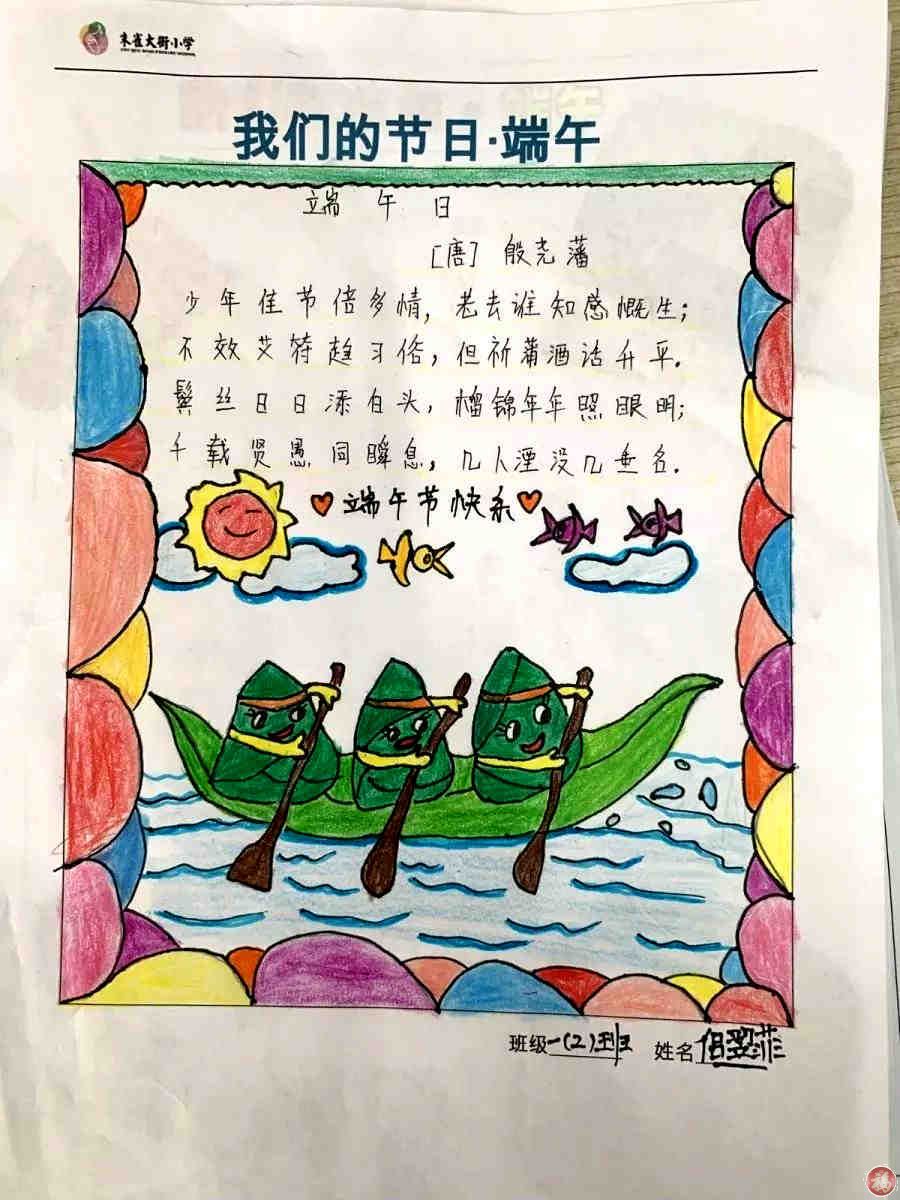 朱雀大街小学
我们的节日·端午
端午日
[唐] 殷尧藩
少年佳节倍多情,老去谁知感慨生;
不效艾符趋习俗,但祈蒲酒话升平.
鬓丝日日添白头,榴锦年年照眼明;
千载贤愚同瞬息,几人湮没几垂名.
端午节快乐
班级一(2)班 姓名
福